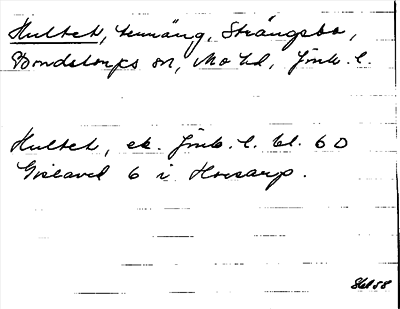 Hultet, tennäng, Strängsbo,
Bondstorps sn, Mo hd, Jönk. l.
Hultet, ek. Jönk. l. bl. 60
Gislaved 6 i Horsarp.